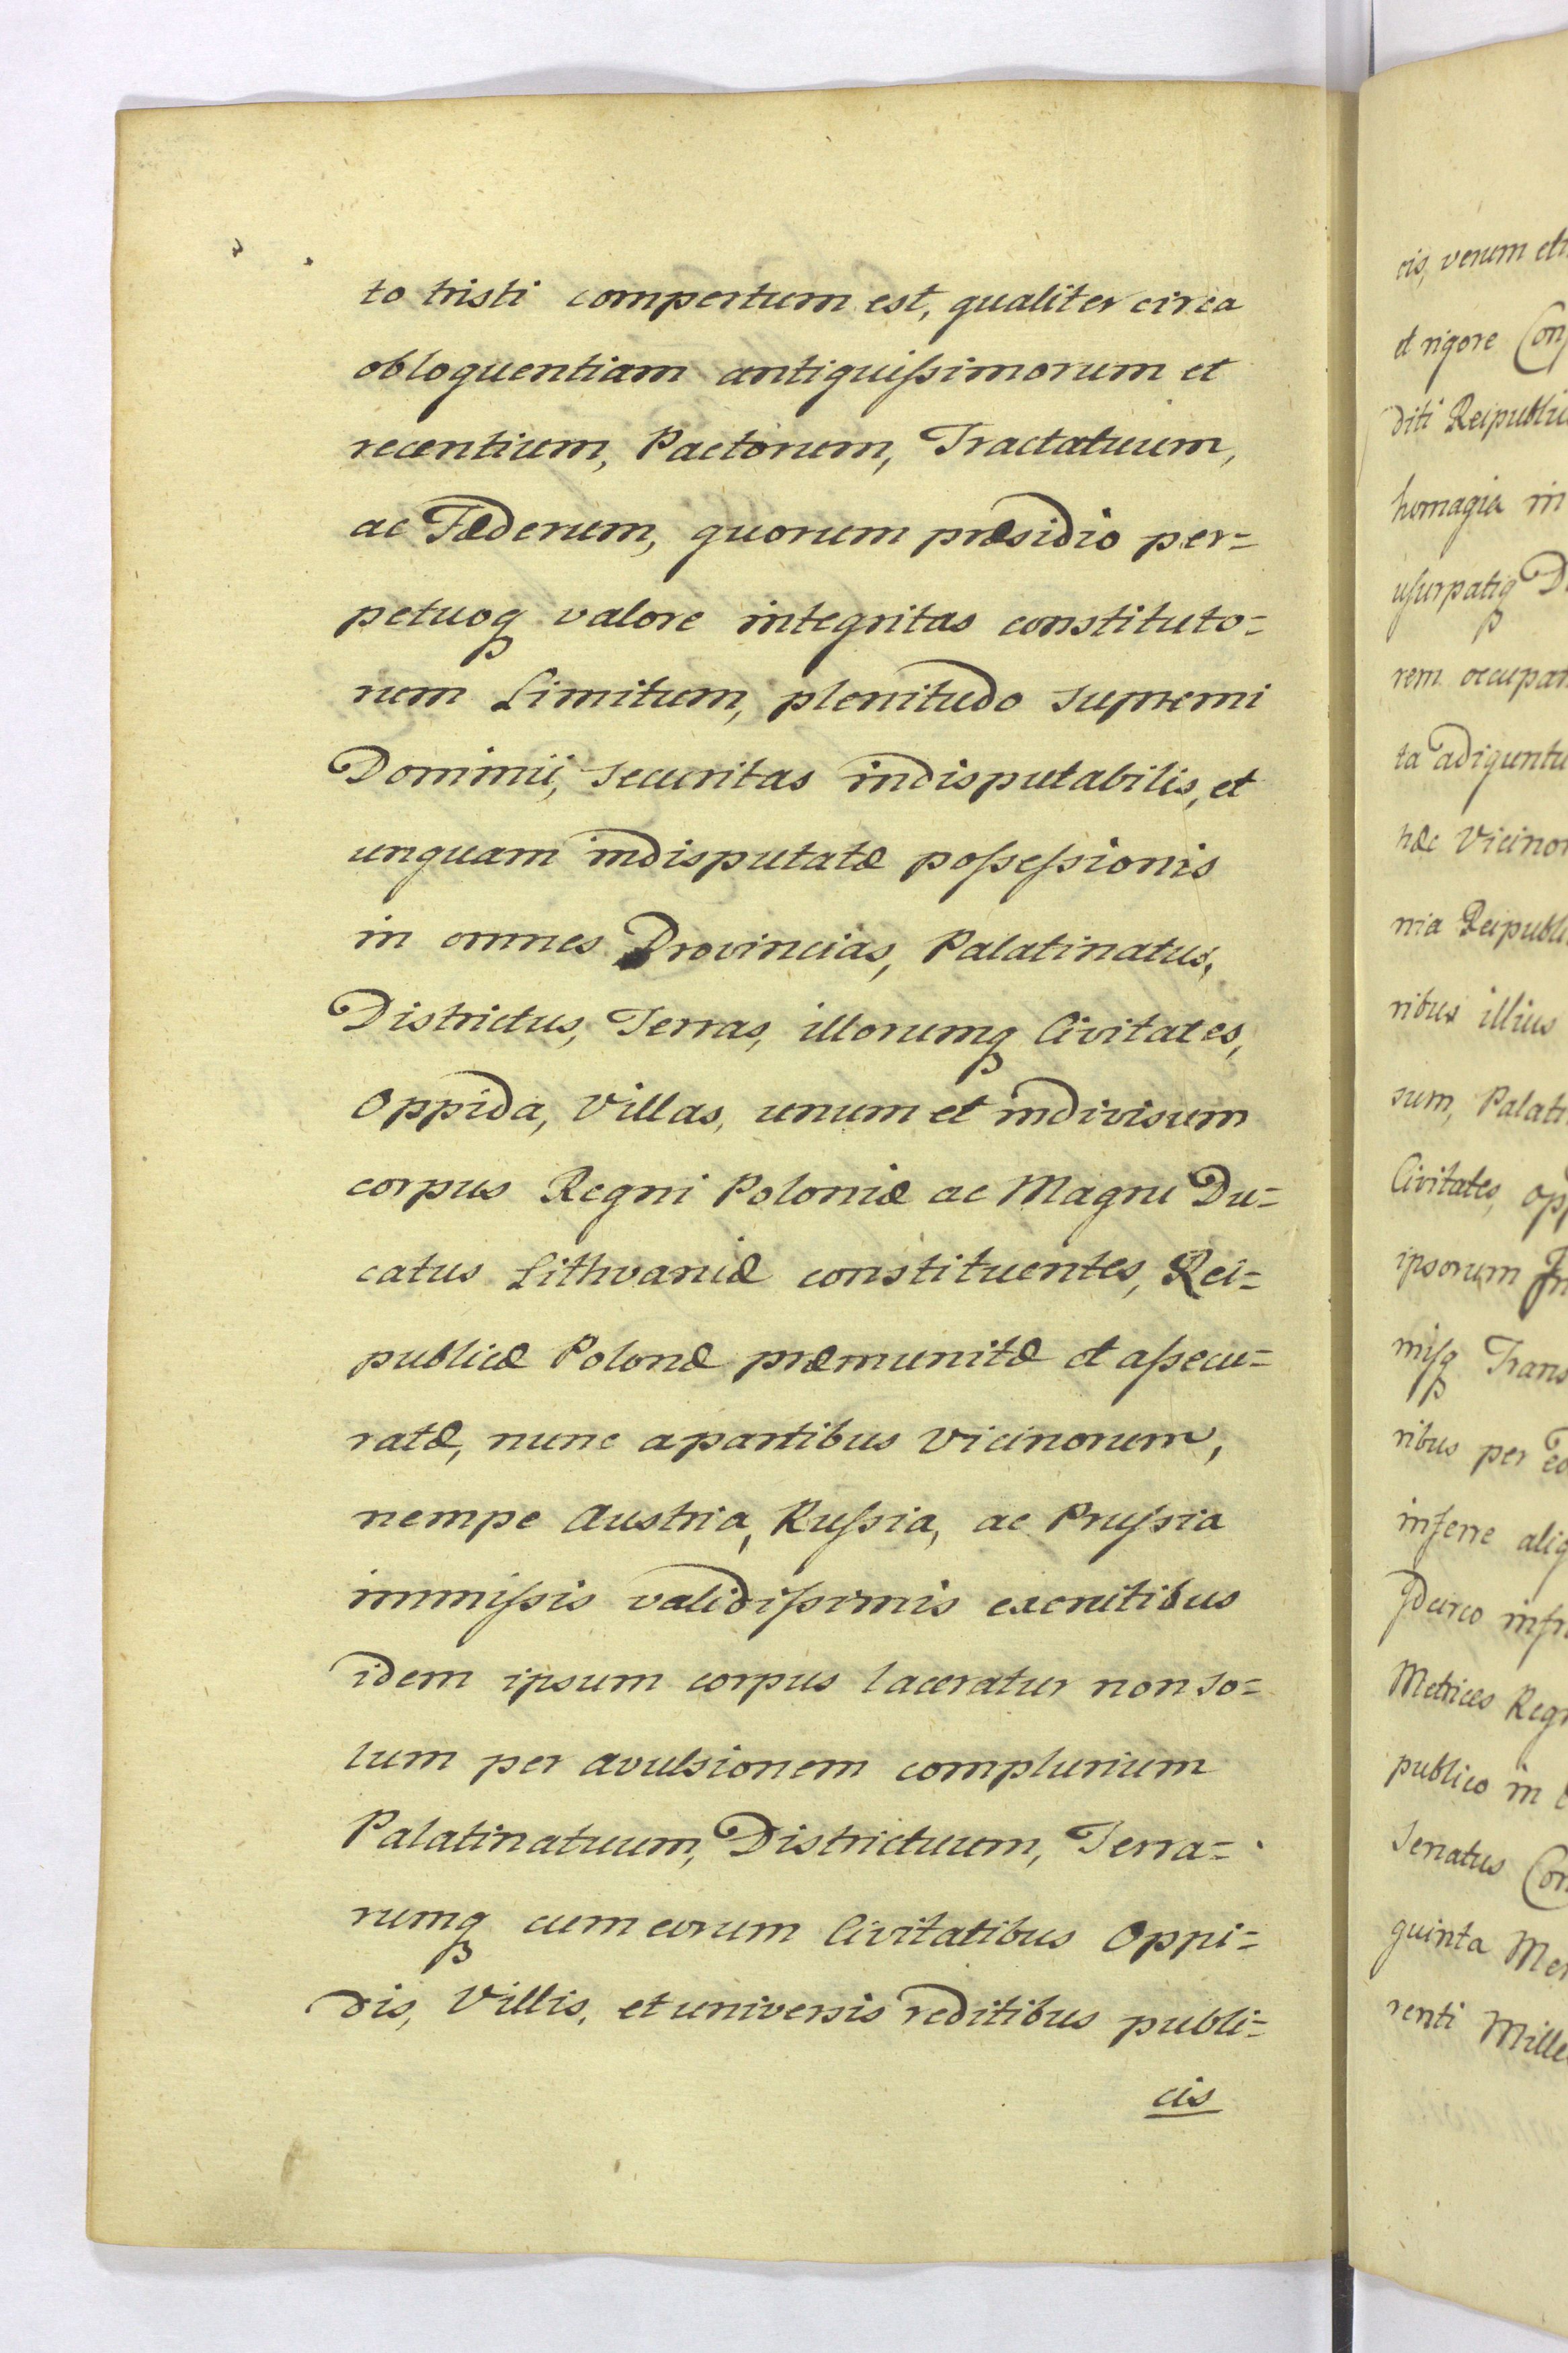 to tristi compertum est, qualiter circa
obloquentiam antiquissimorum et
recentium, Pactorum, Tractatuum,
ac Fæderum, quorum præsidio per=
petuoq valore integritas constituto=
rum Limitum, plenitudo supremi
Dominii, securitas indisputabilis, et
unquam indisputatæ possessionis
in omnes Provincias, Palatinatus,
Districtus, Terras, illorumq Civitates,
Oppida, Villas, unum et indivisum
corpus Regni Poloniæ ac Magni Du=
catus Lithvaniæ constituentes, Rei=
publicæ Polonæ præmunitæ et assecu=
ratæ, nunc a partibus Vicinorum,
nempe Austria, Russia, ac Prussia
immissis validissimis exercitibus
idem ipsum corpus laceratur non so=
lum per avulsionem complurium
Palatinatuum, Districtuum, Terra=
rumq cum eorum Civitatibus Oppi=
dis, Villis, et universis reditibus publi=
cis
cis, verum
et rigore
diti
homagia in
usurpatiq
rem
ta adiguntu
hæc Vicino
nia
ribus illius
sum,
Civitates,
ipsorum
nisq
ribus per
inferre
Idcirco
Metrices
publico in
Senatus
quinta
renti